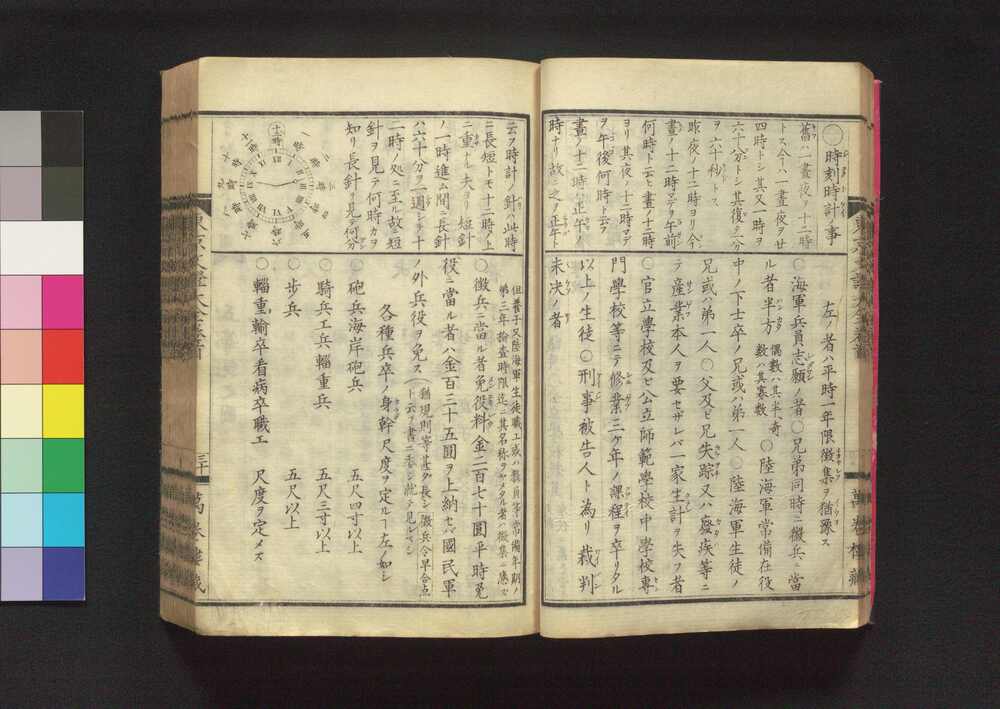 〇時刻時計ノ事
舊ハ一晝夜ヲ十二時
トス今ハ一晝夜ヲ廿
四時トシ其又一時ヲ
六十分トシ其復タ一分
ヲ六十秒トス
昨夜ノ十二時ヨリ今
晝ノ十二時マデヲ午前
何時ト云ヒ晝ノ十二時
ヨリ其夜ノ十二時マデ
ヲ午後何時ト云フ
晝ノ十二時ハ正午ノ
時ナリ故ニ之ノ正午ト
左ノ者ハ平時一年限徴集ヲ猶豫ス
〇海軍兵員志願ノ者〇兄弟同時ニ徴兵ニ當
ル者半方 偶數ハ其半バ奇數ハ其寡數 〇陸海軍常備在役
中ノ下士卒ノ兄或ハ弟一人〇陸海軍生徒ノ
兄或ハ弟一人〇父及ヒ兄失踪又ハ癈疾等ニ
テ産業本人ヲ要セサレバ一家生計ヲ失フ者
〇官立學校及ヒ公立師範學校中學校專
門學校等ニテ修業三ケ年ノ課程ヲ卒リタル
以上ノ生徒〇刑事被告人ト為リ裁判
未决ノ者
東京
云フ時計ノ針ハ此時
ニ長短トモ十二時ノ上
ニ重ナル夫ヨリ短針
ノ一時進ム間ニ長針
ハ六十分ヲ一週シテ十
二時ノ処ニ至ル故ニ短
針ヲ見テ何時カヲ
知リ長針ヲ見テ何分
十二時
一時
二時
三時
四時
五時
六時
七時
八時
九時
十時
十一時
但養子又陸海軍生徒職工或ハ教員等常備年期ノ
第三年檢査時限迄ニ其名称ヲヤメタル者ハ徴集ニ應ズ
〇徴兵ニ當ル者免役料金二百七十圓平時免
役ニ當ル者ハ金百三十五圓ヲ上納セバ國民軍
ノ外兵役ヲ免ス 猶規則等甚タ長シ徴兵令早合点ト云フ書ニ委シ就テ見ルベシ
各種兵卒ノ身幹尺度ヲ定ルヿ左ノ如シ
〇砲兵海岸砲兵 五尺四寸以上
〇騎兵工兵輜重兵 五尺三寸以上
〇歩兵 五尺以上
〇輜重輸卒看病卒職工 尺度ヲ定メズ
東京
三十
萬